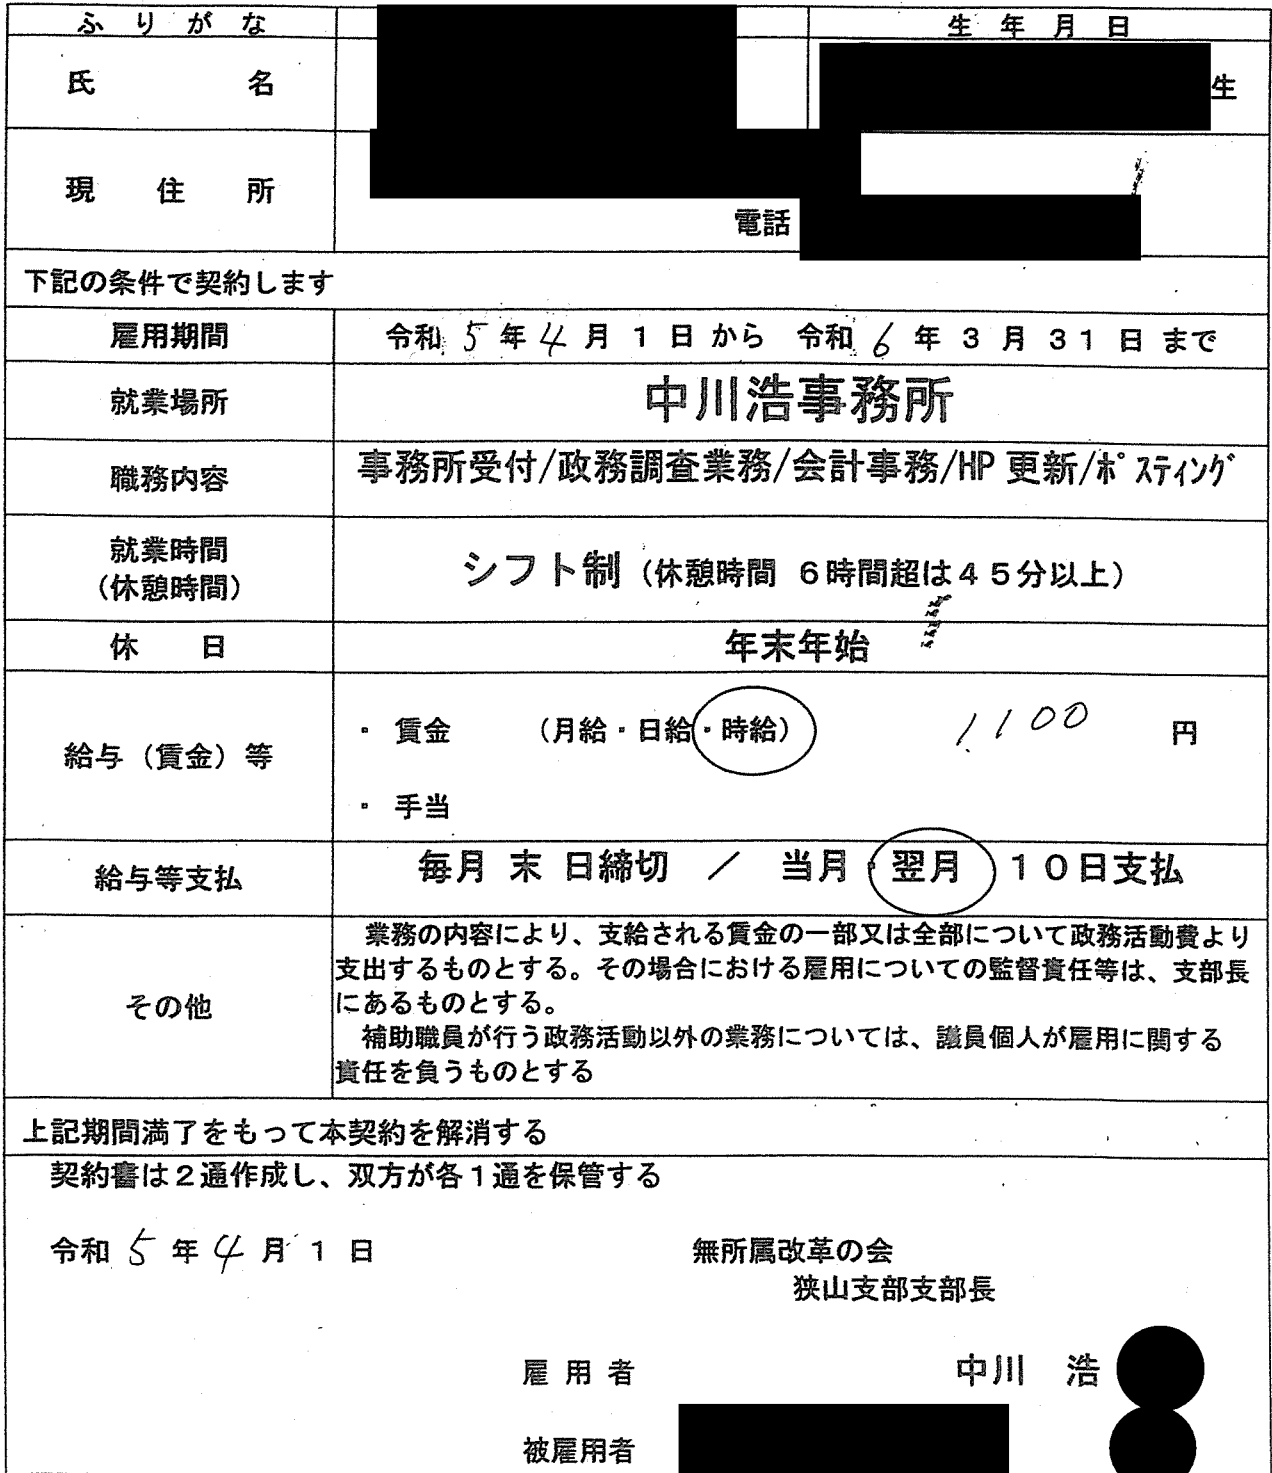 ふりがな
生年月日
氏名
生
現住所
電話
下記の条件で契約します
雇用期間 令和5年4月1日から 令和6年3月31日まで
就業場所 中川浩事務所
職務内容 事務所受付/政務調査業務/会計事務/HP更新/ポスティング
就業時間
(休憩時間)
シフト制(休憩時間 6時間超は45分以上)
休日 年末年始
給与(賃金)等
・賃金 (月給・日給・時給) 1,100円
・手当
給与等支払 毎月末日締切 / 当月・翌月 10日支払
その他
業務の内容により、支給される賃金の一部又は全部について政務活動費より
支出するものとする。その場合における雇用についての監督責任等は、支部長
にあるものとする。
補助職員が行う政務活動以外の業務については、議員個人が雇用に関する
責任を負うものとする
上記期間満了をもって本契約を解消する
契約書は2通作成し、双方が各1通を保管する
令和5年4月1日
無所属改革の会
狭山支部支部長
雇用者 中川 浩
被雇用者